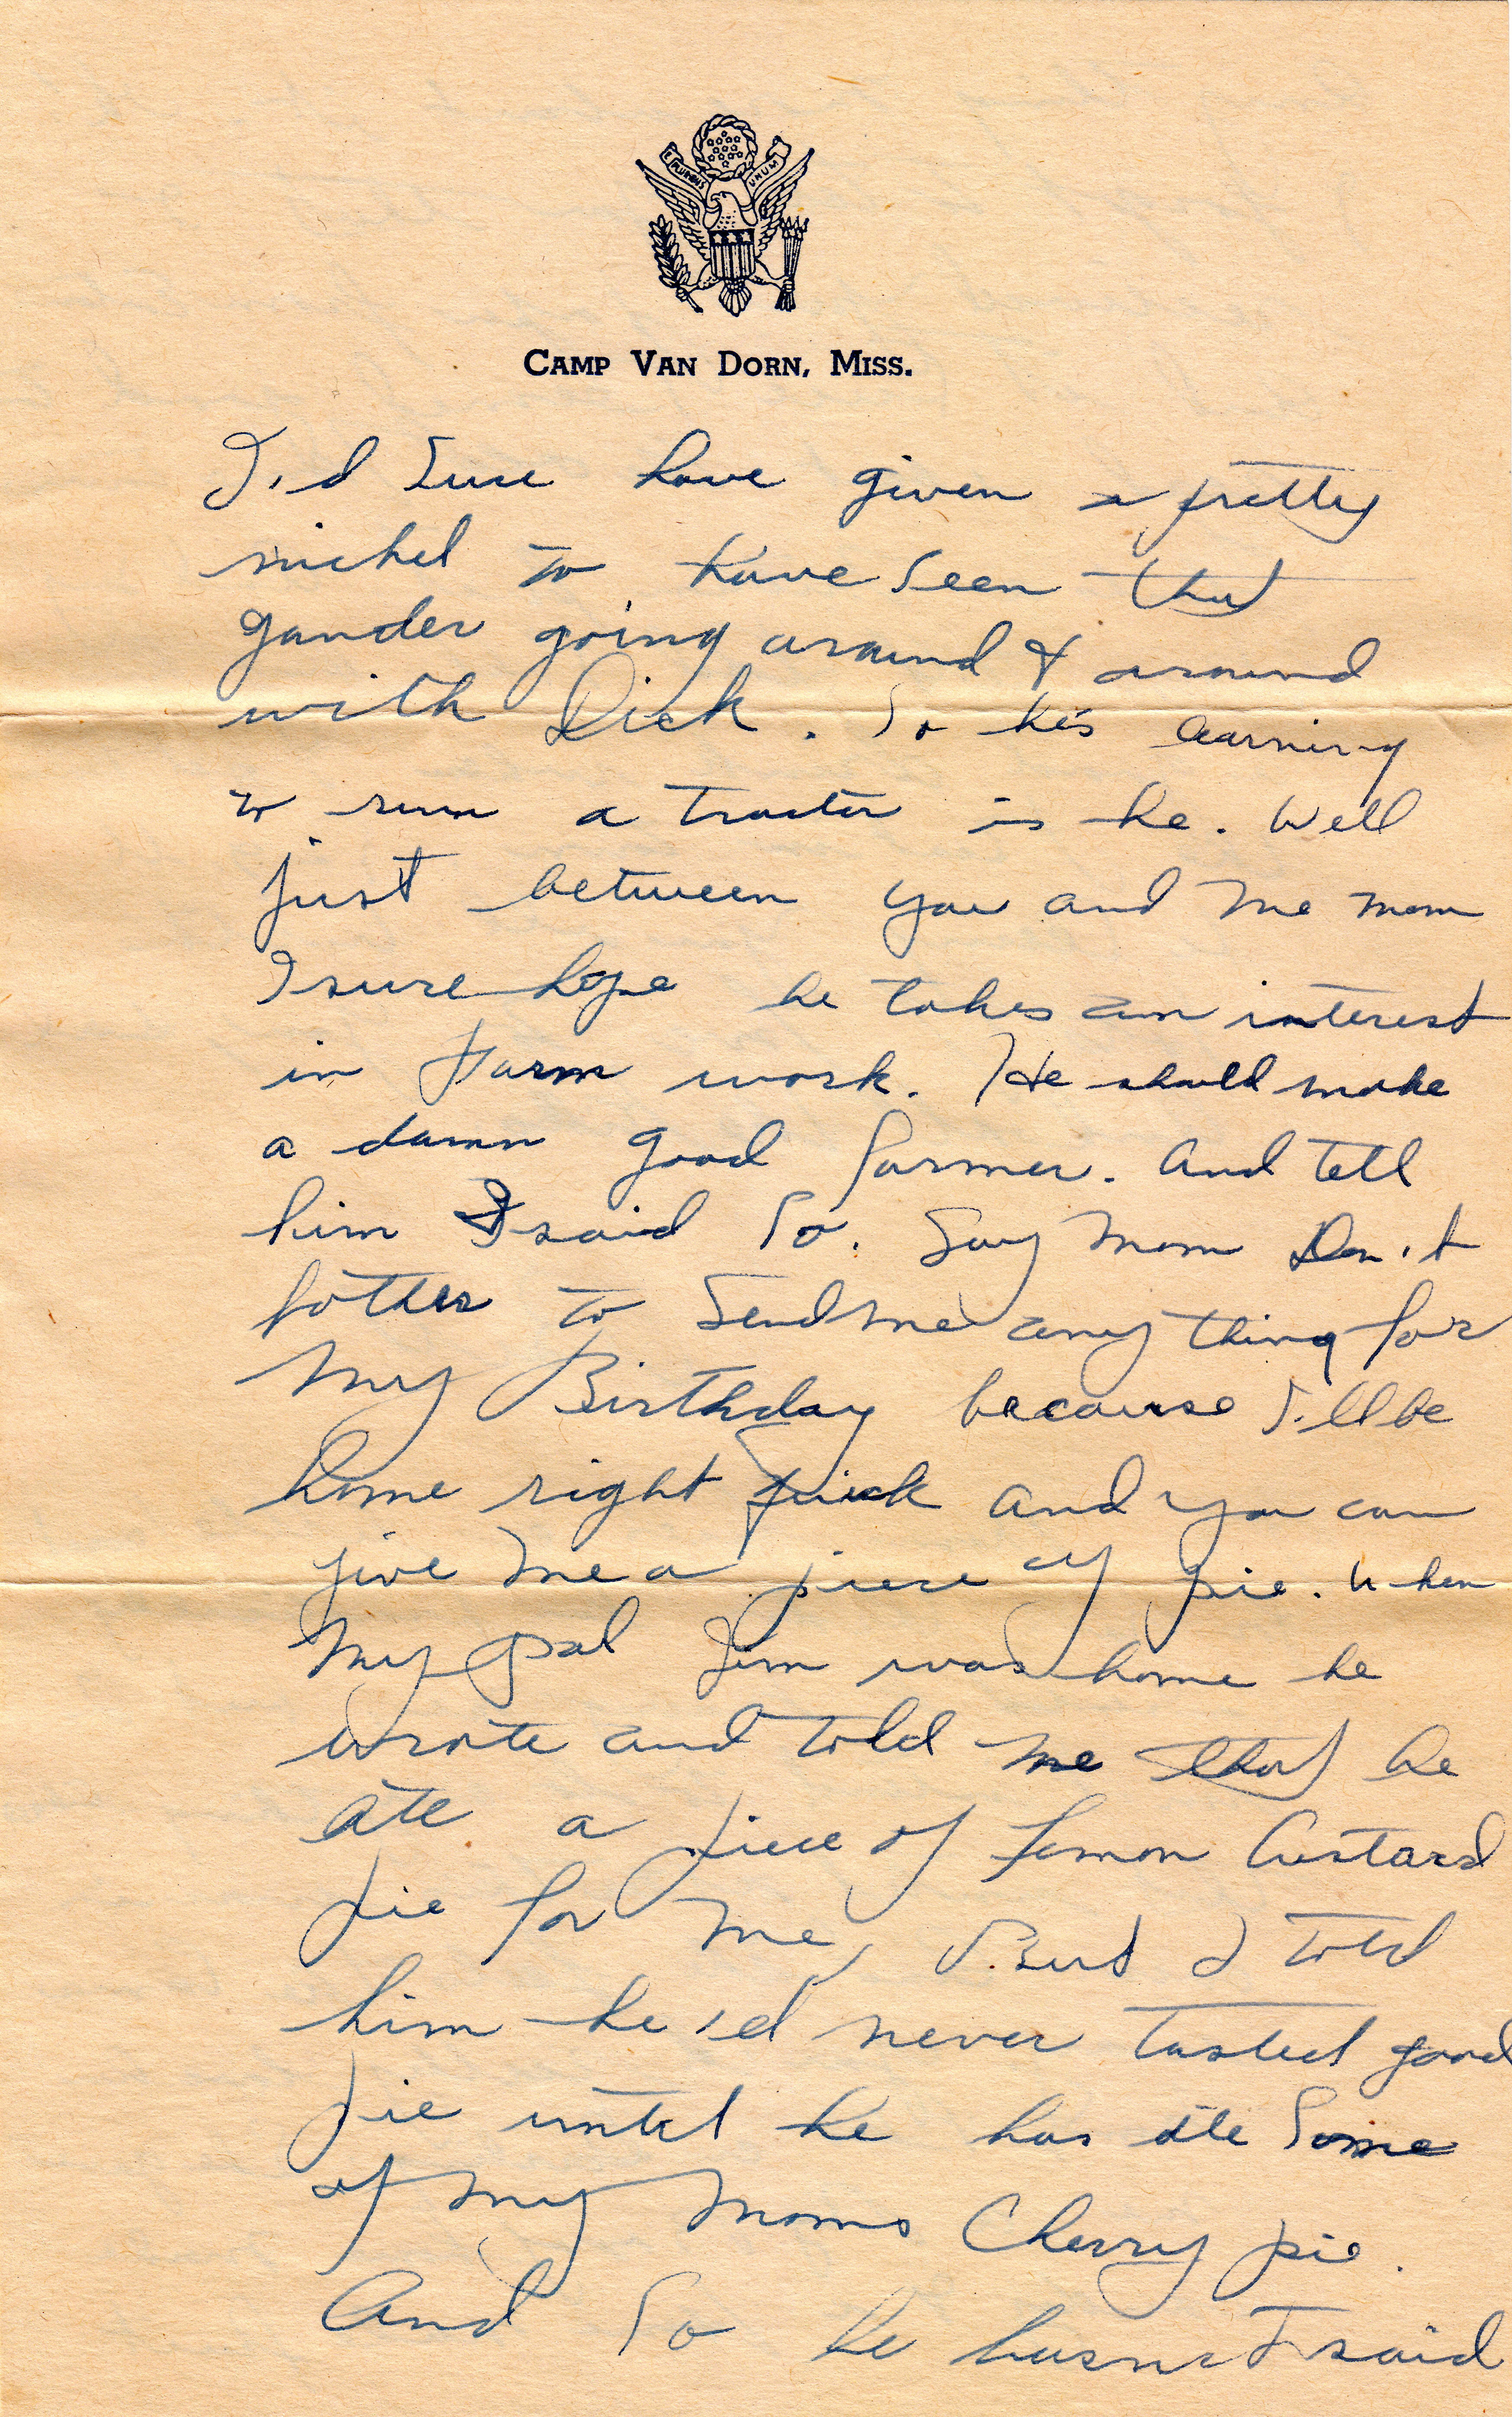 E PLURIBUS UNUM
CAMP VAN DORN, MISS.
I'd Sure have given a pretty
nickel to have seen that
gander going around & around
with Dick. So he's learning
to run a tractor is he. Well
just between you and me mom
I sure hope he takes an interest
in farm work. He should make
a damn good farmer. And tell
him I said So. Say Mom Don't
bother to Send me any thing for
My Birthday because I'll be
home right quick and you can
give me a piece of pie. When
My pal Jim was home he
wrote and told me that he
ate a piece of Lemon Custard
pie for me, But I told
him he'd never tasted good
pie until he has ate Some
of my Moms Cherry pie.
And So he hasn't I said